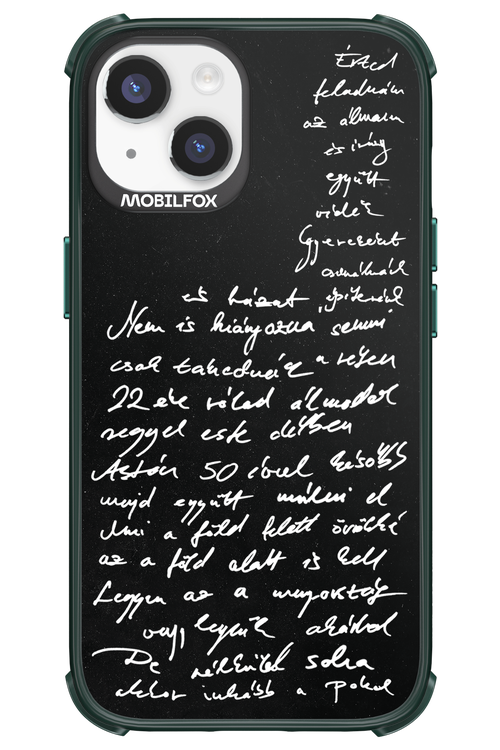 MOBILFOX
Érted
feladnám
az álmaim
és írnq
együtt
vidék
Gyerekeket
csinálnánk
és házat építenénk
Nem is hiányozna semmi
csak takarodnánk a
22 éve rólad álmodok
reggel este délben
Aztán 50 évvel később
majd együtt múlni el
Ami a föld felett örökké
az a föld alatt is kell
Legyen az a mennyország
vagy legyünk akárhol
De nélküled soha
akkor inkább a Pokol